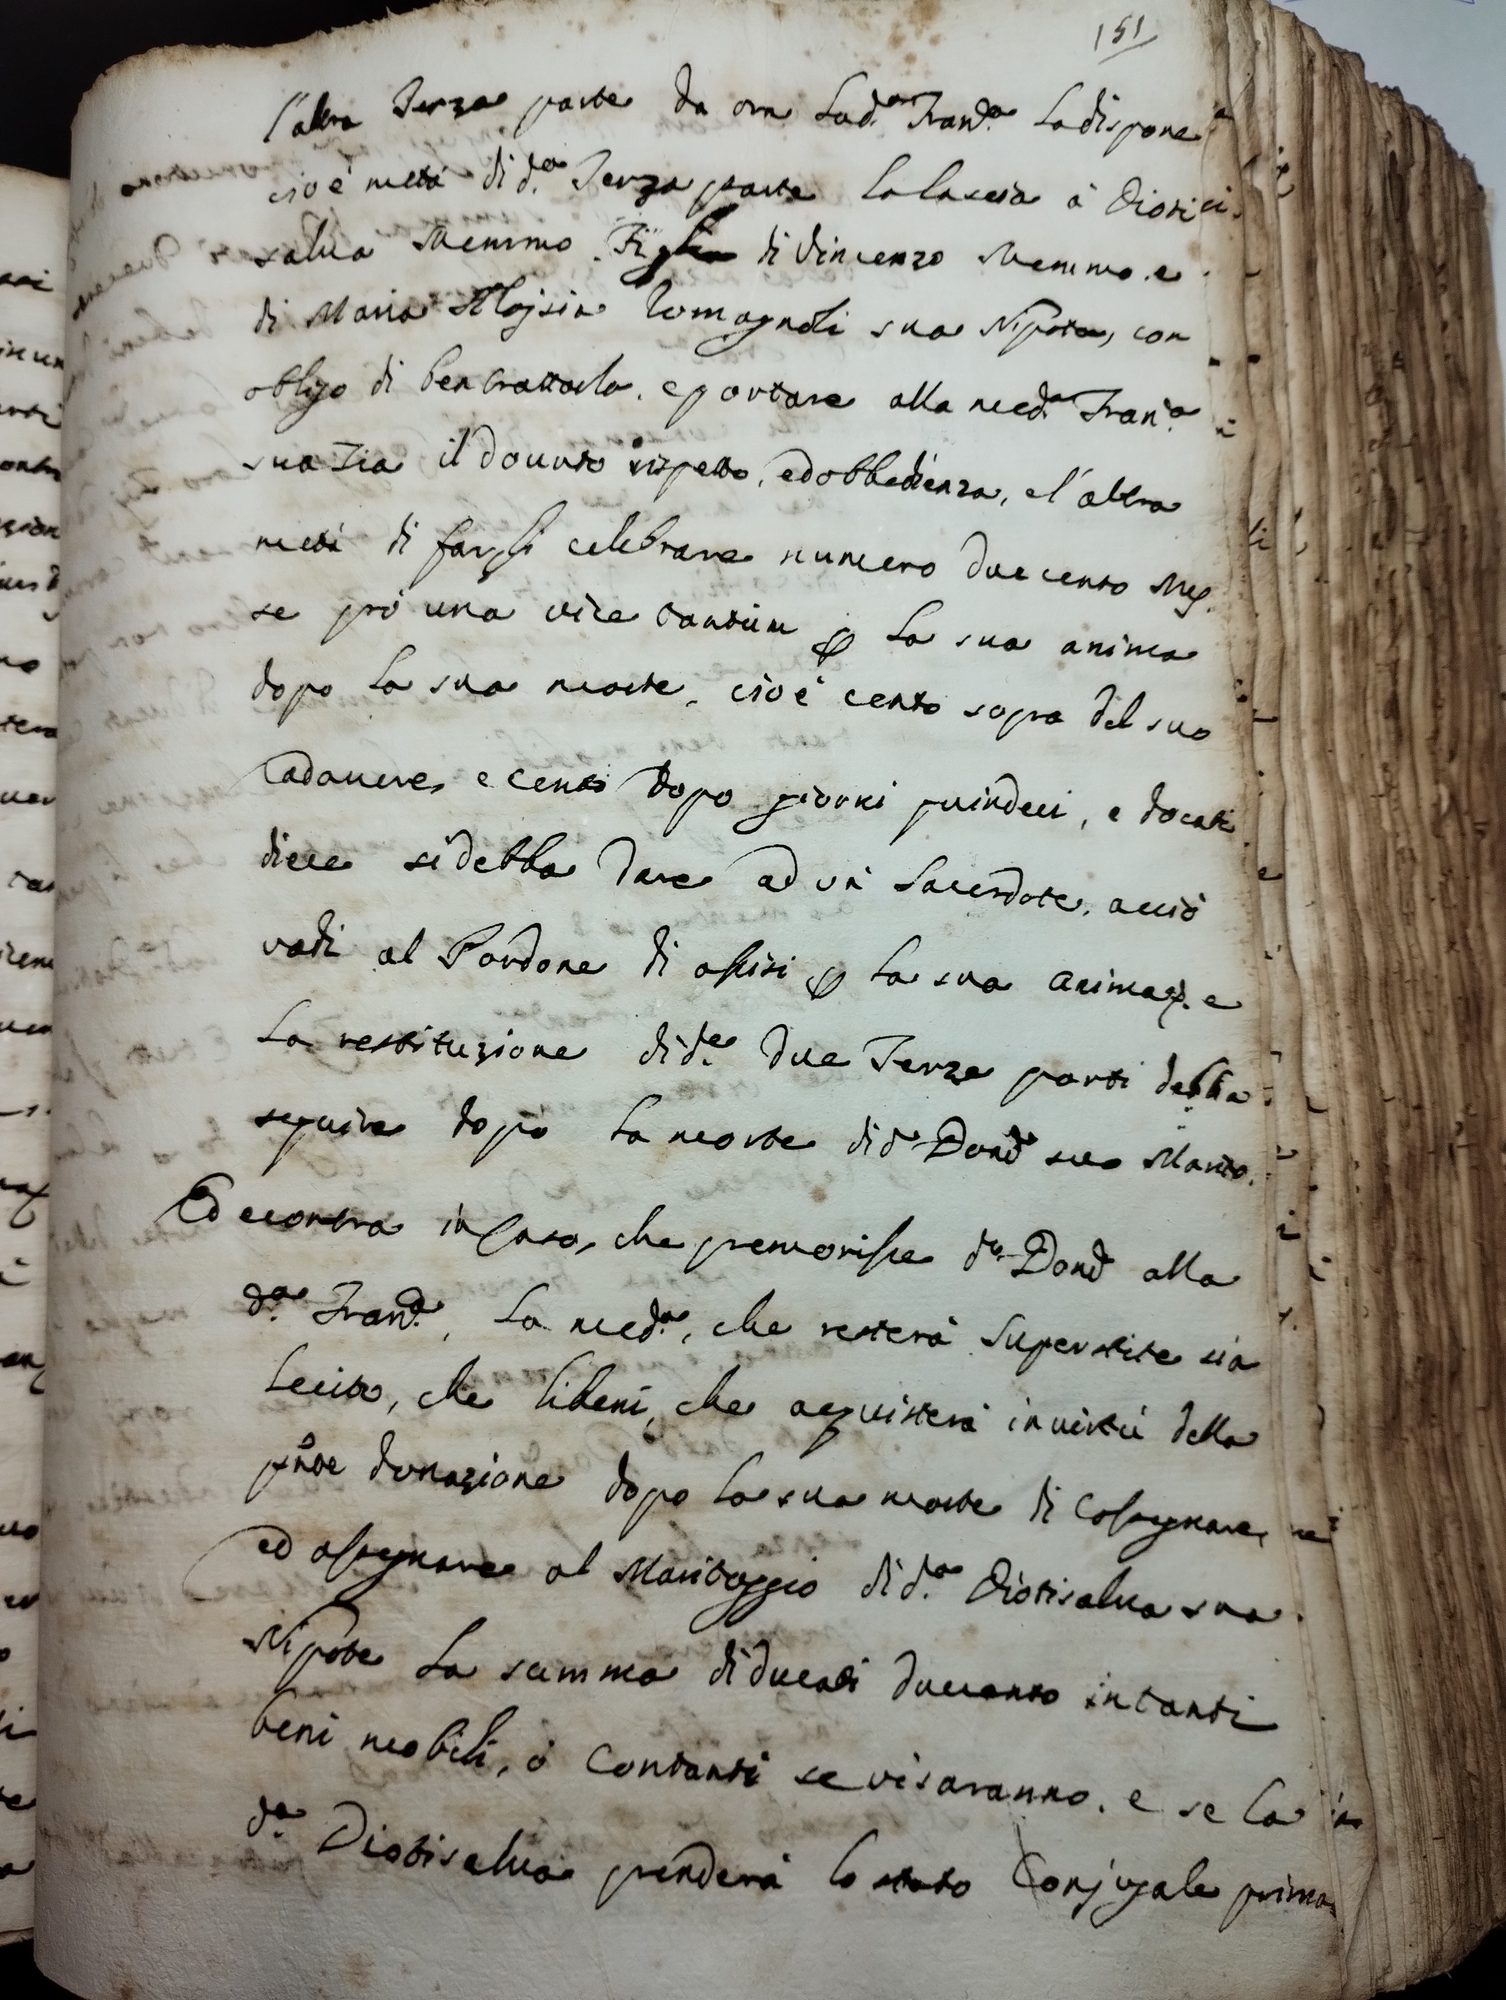 151
l'altra Terza parte da ora la d.ª Fran.ª la dispone
cioè metà di d.ª Terza parte la lascia à Dioti
salva Memmo Figlia di Vincenzo Memmo e
di Maria Alojsia Romagnoli sua Nipote, con
obligo di ben trattarla, e portare alla med.ª Fran.ª
sua Zia il dovuto rispetto, ed obbedienza, e l'altra
metà di farsi celebrare numero duecento Mes
se prò una vice tantùm per la sua anima
dopo la sua morte, cioè cento sopra del suo
Cadavere, e cento dopo giorni quindeci, e docati
diece si debba dare ad un Sacerdote, acciò
vadi al Perdono di Assisi per la sua anima, e
la restituzione di d.e due Terze parti debba
seguire dopo la morte di d.º Don.º suo Marito.
Ed econtra in caso, che premorisse d.º Don.º alla
d.ª Fran.ª, la med.ª, che resterà superstite sia
lecito, che li beni, che acquisterà in virtù della
pñte donazione dopo la sua morte di consegnare,
ed assegnare al Maritaggio di d.ª Diotisalva sua
Nipote la summa di ducati duecento in tanti
beni mobili, ò contanti se vi saranno, e se la
d.ª Diotisalva prenderà lo stato Conjugale prima